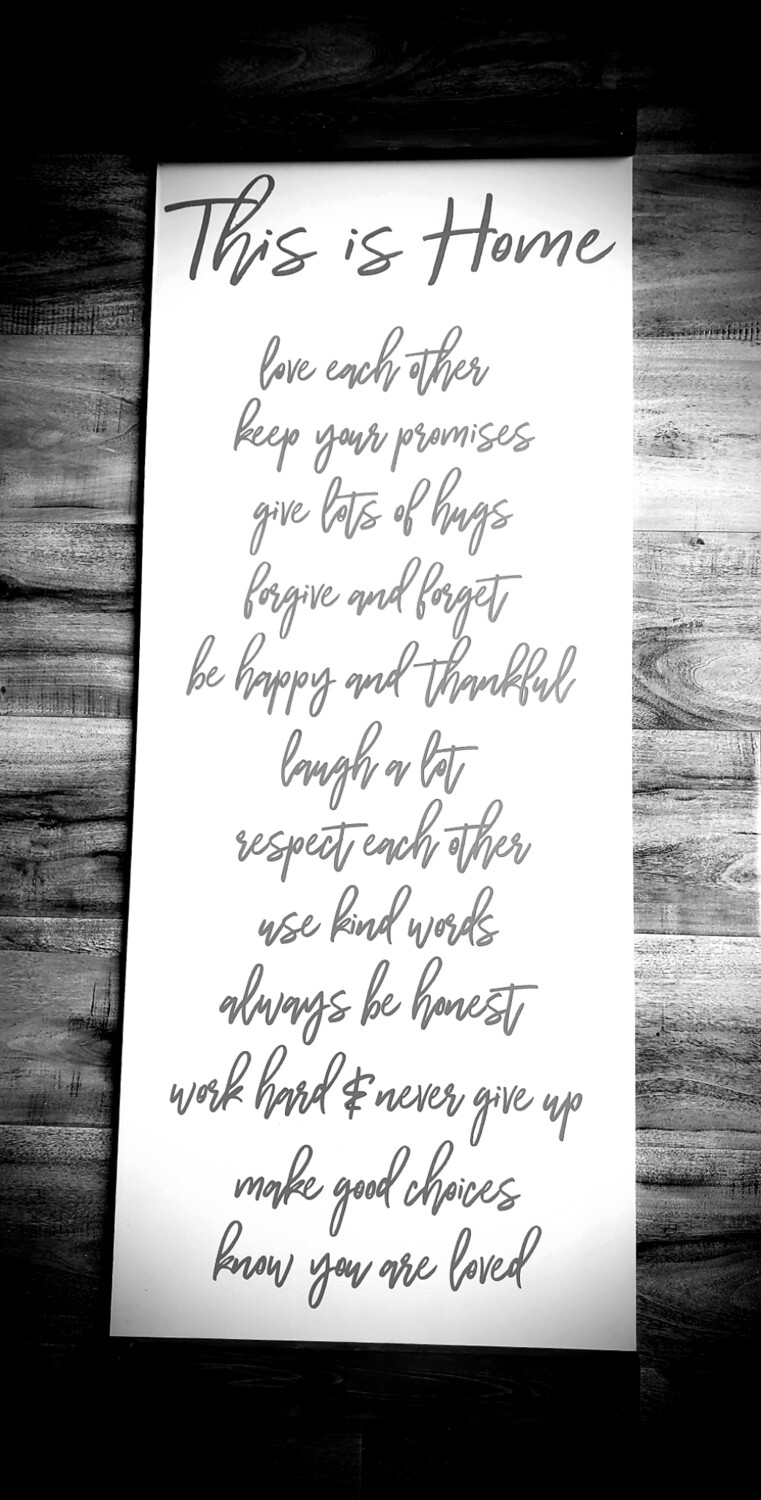 This is Home
love each other
keep your promises
give lots of hugs
forgive and forget
be happy and thankful
laugh a lot
respect each other
use kind words
always be honest
work hard & never give up
make good choices
know you are loved